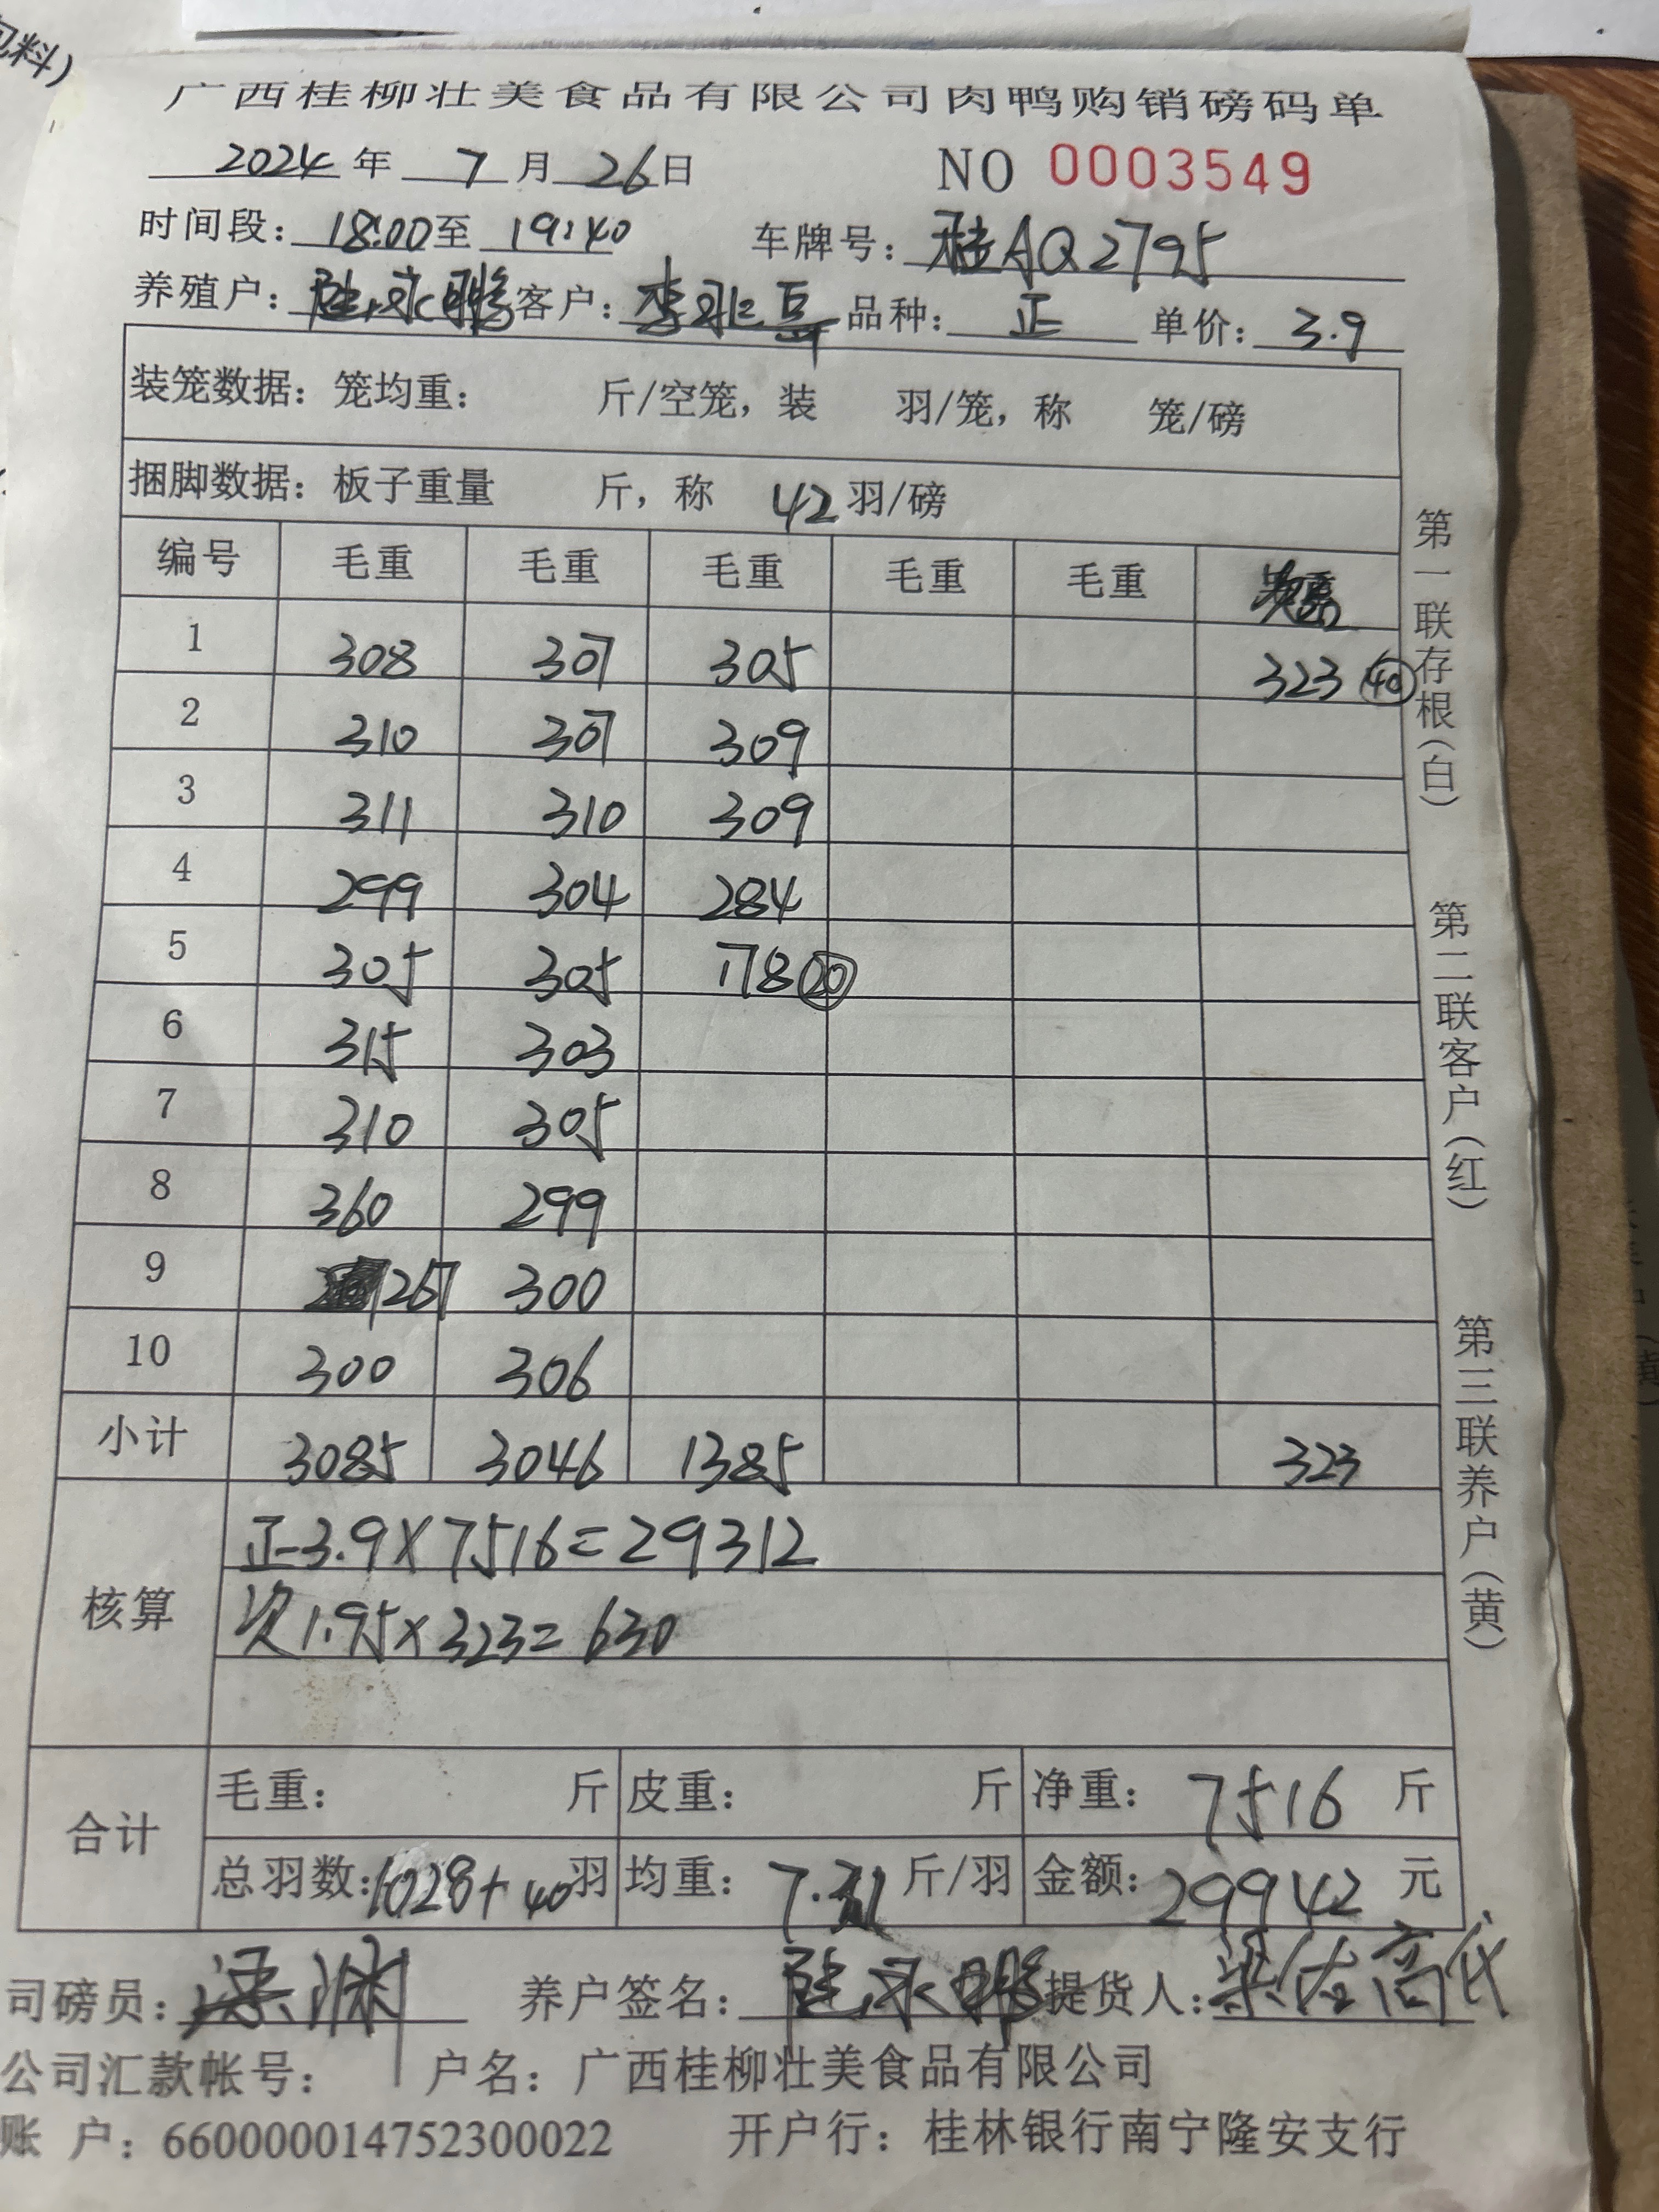 包料)
广西桂柳壮美食品有限公司肉鸭购销磅码单
2024 年 7 月 26 日 NO 0003549
时间段: 18:00 至 19:40 车牌号: 桂AQ2795
养殖户: 陆永鹏 客户: 李 品种: 正 单价: 3.9
装笼数据: 笼均重: 斤/空笼, 装 羽/笼, 称 笼/磅
捆脚数据: 板子重量 斤, 称 42 羽/磅
编号 毛重 毛重 毛重 毛重 毛重
1 308 307 305 323 ㊵
2 310 307 309
3 311 310 309
4 299 304 284
5 305 305 178 ⑳
6 315 303
7 310 305
8 360 299
9 267 300
10 300 306
小计 3085 3046 1385 323
核算 正-3.9×7516=29312
次1.95×323=630
合计 毛重: 斤 皮重: 斤 净重: 7516 斤
总羽数: 1028+40 羽 均重: 7.31 斤/羽 金额: 29942 元
司磅员: 梁 养户签名: 陆永鹏 提货人: 梁
公司汇款帐号: 户名: 广西桂柳壮美食品有限公司
账 户: 660000014752300022 开户行: 桂林银行南宁隆安支行
第一联存根(白)
第二联客户(红)
第三联养户(黄)